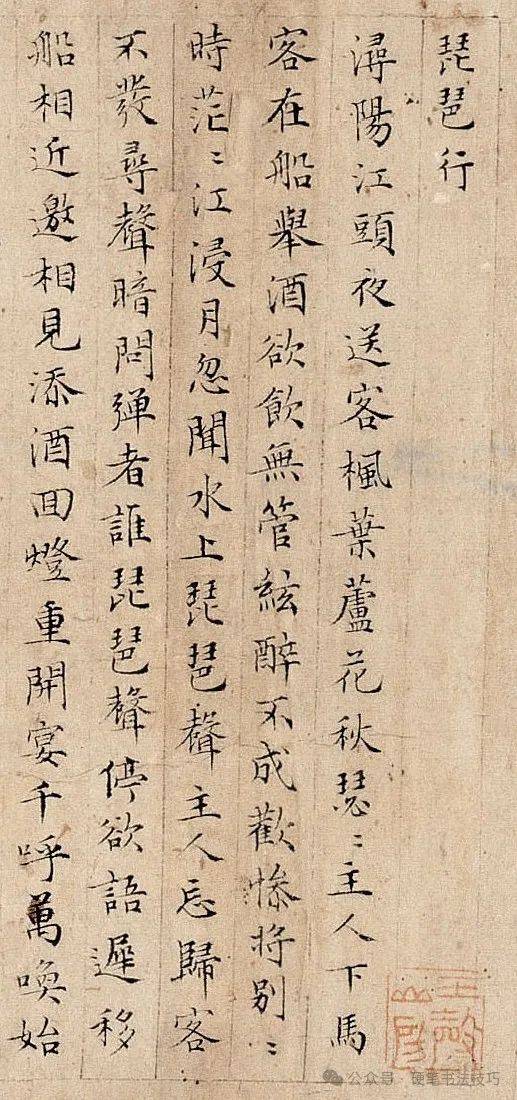 琵琶行
潯陽江頭夜送客楓葉蘆花秋瑟〻主人下馬
客在船舉酒欲飲無管絃醉不成歡慘將别〻
時茫〻江浸月忽聞水上琵琶聲主人忘歸客
不發尋聲暗問彈者誰琵琶聲停欲語遲移
船相近邀相見添酒回燈重開宴千呼萬喚始
公众号·硬笔书法技巧